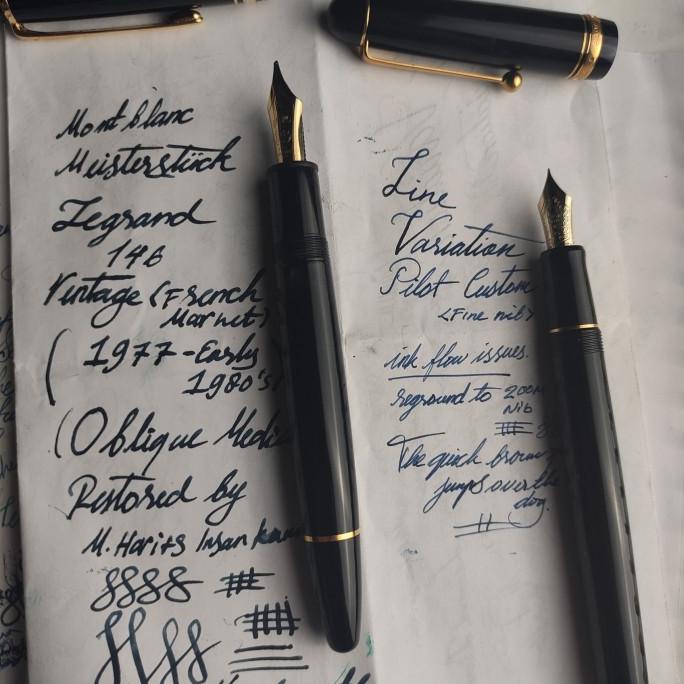 Mont blanc
Meisterstück
Legrand
146
Vintage (French
Market)
(1977-Early
1980's)
(Oblique
Restored by
M. Harits Insan
Line
Variation
Pilot Custom
<Fine nib>
ink flow issues.
reground to
Nib
The quick brown
jumps over the
dog.